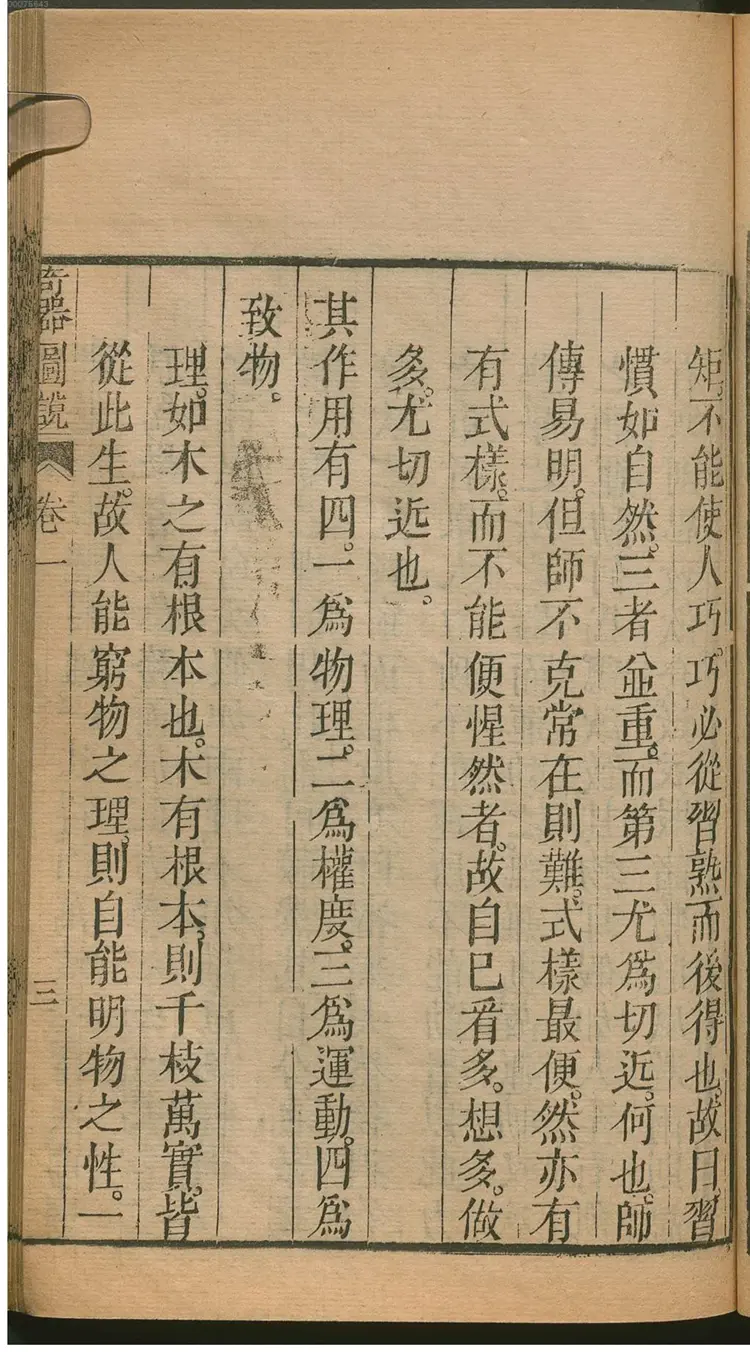 矩。不能使人巧。巧必從習熟而後得也。故曰習
慣如自然。三者並重。而第三尤爲切近。何也。師
傳易明。但師不克常在則難。式樣最便。然亦有
有式樣。而不能便惺然者。故自巳看多。想多。做
多。尤切近也。
其作用有四。一爲物理。二爲權度。三爲運動。四爲
致物。
理。如木之有根本也。木有根本。則千枝萬實。皆
從此生。故人能窮物之理。則自能明物之性。一
奇器圖說 卷一 三
00076643